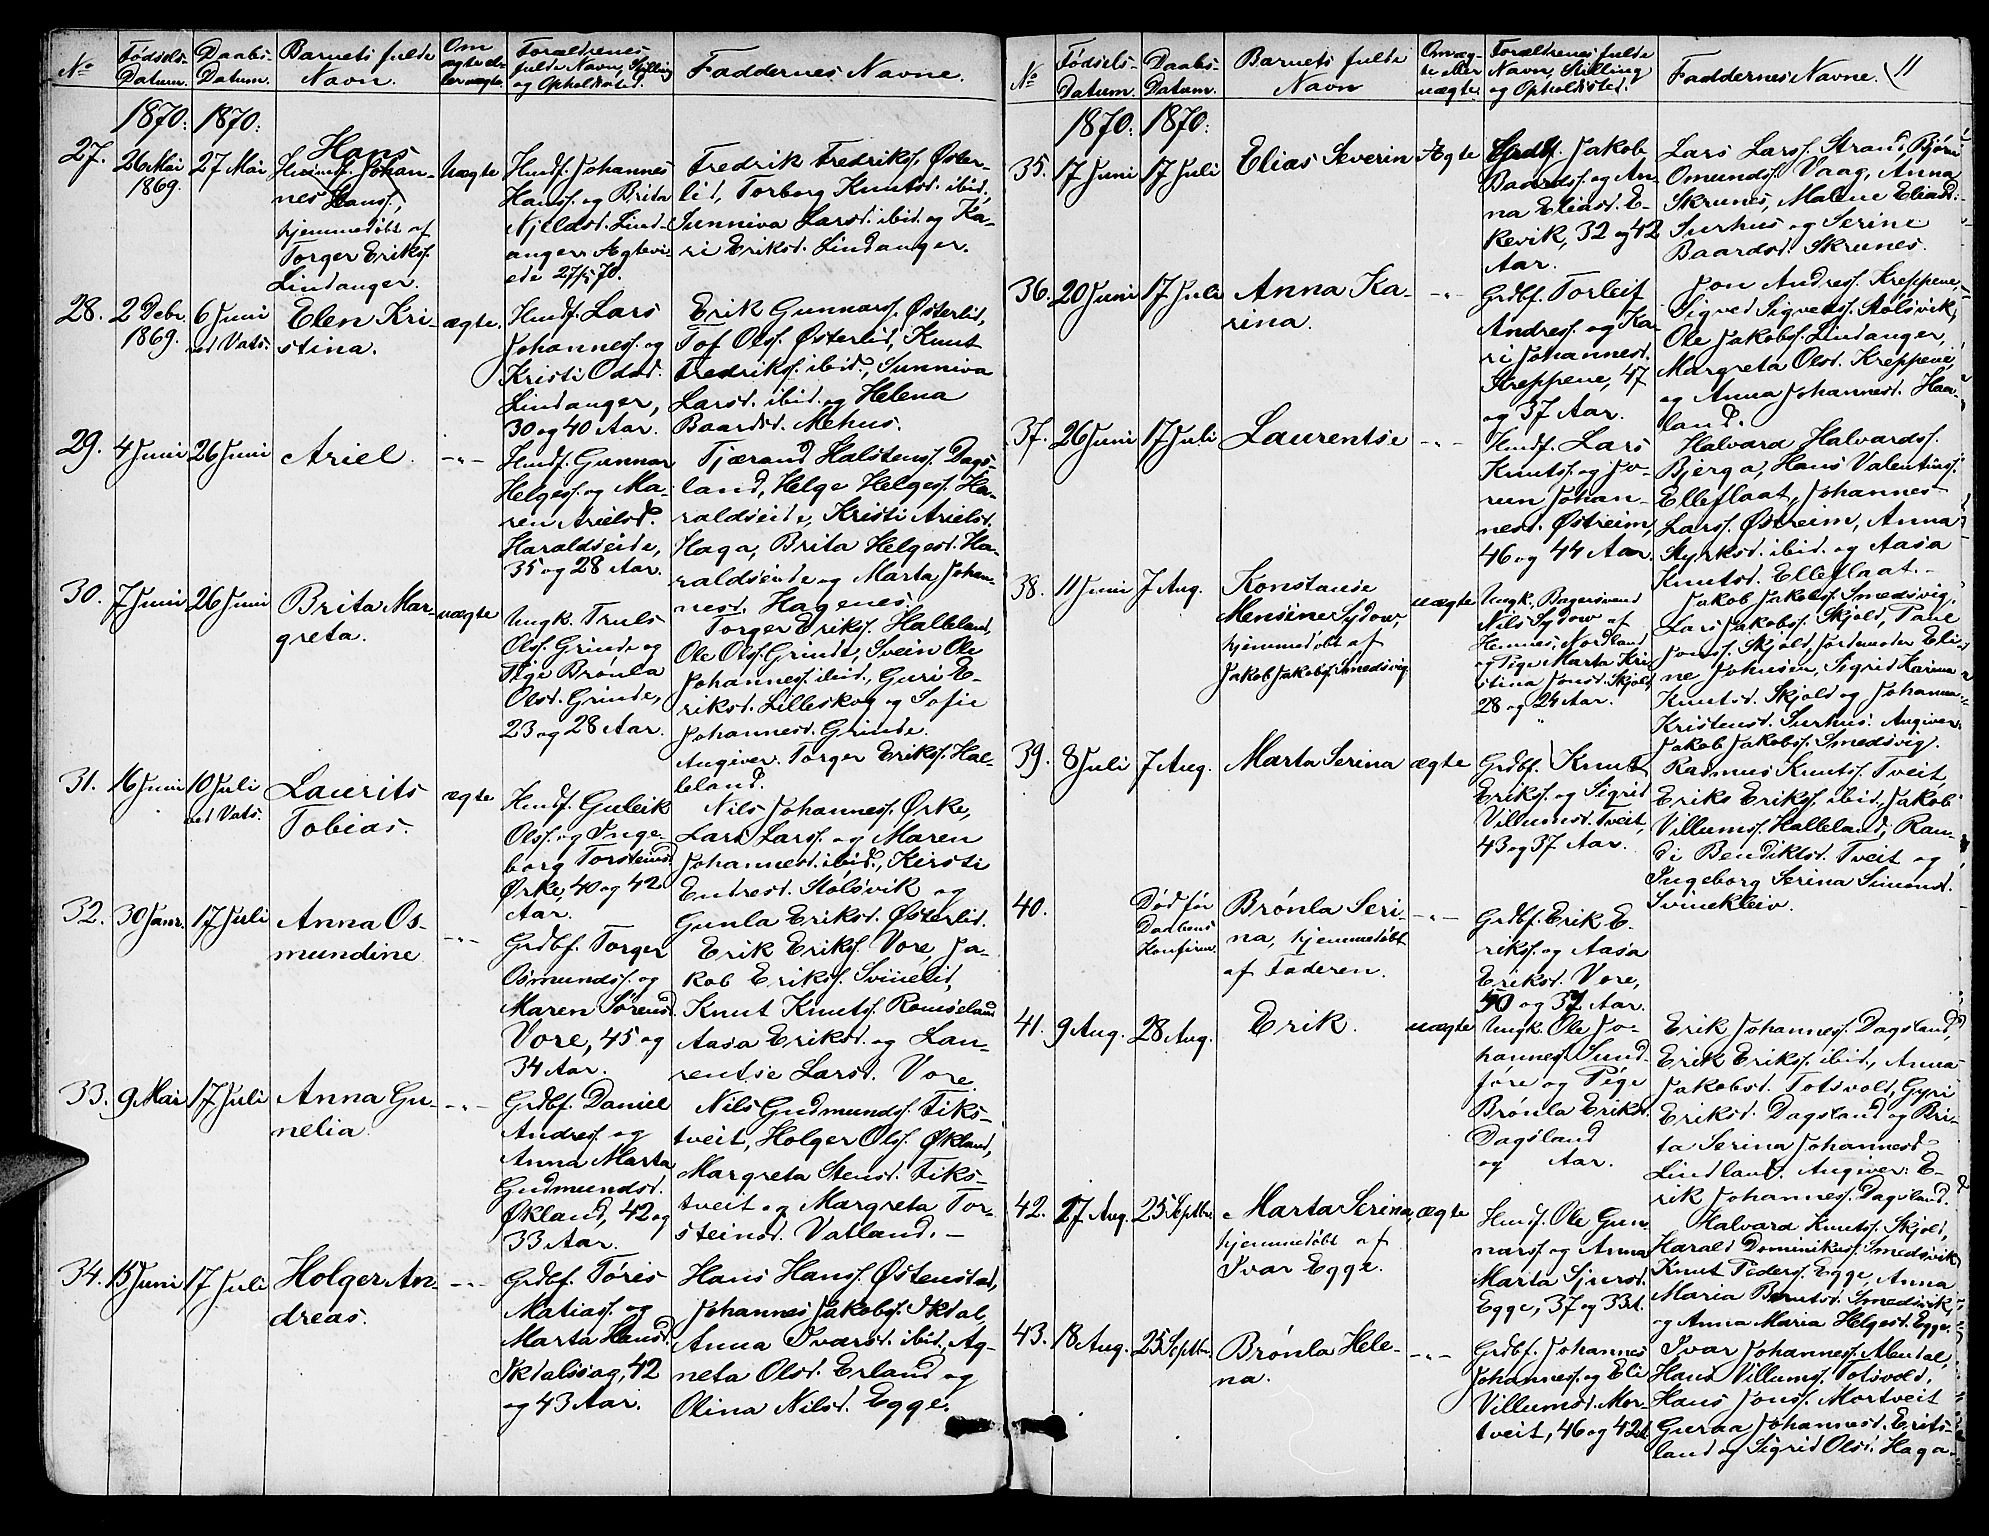 No
Fødsels-
Datum.
Daabs-
Datum.
Barnets fulde
Navn.
Om
ægte el-
ler uægte.
Forældrenes
fulde Navn, Stilling
og Opholdssted.
Faddernes Navne.
1870: 1870:
27.
26 Mai
1869.
27 Mai
Hans
Johan-
nes Hanss.,
hjemmedøbt af
Torger Erikss.
Lindanger.
Uægte
Husf. Johannes
Hanss. og Brita
Njelsd. Lind-
anger. Ægtevi-
ede 27/5 70.
Fredrik Fredrikss. Øster-
lid, Torborg Knutsd. ibid,
Sunniva Larsd. ibid. og Ka-
ri Eriksd. Lindanger.
28.
2 Debr.
1869.
6 Juni
ved Vats.
Elen Kri-
stina.
ægte.
Husf. Lars
Johanness. og
Kristi Oddsd.
Lindanger,
30 og 40 Aar.
Erik Gunnarss. Østerlid,
Tof Olss. Østerlid, Knut
Fredrikss. ibid., Sunniva
Larsd. ibid. og Helena
Baardsd. Mehus.
29.
4 Juni
26 Juni
Ariel.
-"-
Husf. Gunnar
Helgess. og Ma-
ren Arielsd.
Haraldseide,
35 og 28 Aar.
Tjærand Halstenss. Dags-
land, Helge Helgess. Ha-
raldseide, Kristi Arielsd.
Haga, Brita Helgesd. Ha-
raldseide og Marta Johan-
nesd. Hagenes.
30.
7 Juni
26 Juni
Brita Mar-
greta.
uægte
Ungk. Truls
Olss. Grinde og
Pige Brønla
Olsd. Grinde,
23 og 28 Aar.
Torger Erikss. Halleland,
Ole Olss. Grinde, Svein Ole
Johanness. ibid., Guri E-
riksd. Lilleskog og Sofie
Johannesd. Grinde.
Angiver: Torger Erikss. Hal-
leland.
31.
16 Juni
10 Juli
ved Vats.
Laurits
Tobias.
ægte
Husf. Guleik
Olss. og Inge-
borg Torsteinsd.
Ørke, 40 og 42
Aar.
Nils Johanness. Ørke,
Lars Larss. og Maren
Johannesd. ibid., Kirsti
Endresd. Stølsvik og
Gunla Eriksd. Østerlid.
32.
30 Janr.
17 Juli
Anna Os-
mundine
-"-
Grdbf. Torger
Osmundss. og
Maren Sørensd.
Vore, 45 og
34 Aar.
Erik Erikss. Vore, Ja-
kob Erikss. Svinelid,
Knut Knutss. Romseland
Aasa Eriksd. og Lau-
rentse Larsd. Vore.
33.
9 Mai
17 Juli
Anna Gu-
nelia.
-"-
Grdbf. Daniel
Andress. og
Anna Marta
Gudmundsd.
Økland, 42 og
33 Aar.
Nils Gudmundss. Fiks-
tveit, Holger Olss. Økland,
Margreta Stensd. Fiks-
tveit og Margreta Tor-
steinsd. Vatland.-
34.
15 Juni
17 Juli
Holger An-
dreas.
-"-
Grdbf. Tøris
Matiass. og
Marta Hansd.
Øktalssag, 42
og 43 Aar.
Hans Hanss. Østenstad,
Johannes Jakobss. Iktal,
Anna Ivarsd. ibid., Ag-
neta Olsd. Erland og
Olina Nilsd. Egge.
No
Fødsels-
Datum.
Daabs-
Datum.
Barnets fulde
Navn
Om æg-
te eller
uægte.
Forældrenes fulde
Navn, Stilling
og Opholdssted.
Faddernes Navne.
11
1870: 1870:
35.
17 Juni
17 Juli
Elias Severin
Ægte
Grdbf. Jakob
Baardss. og An-
na Eliasd. E-
kevik, 32 og 42
Aar.
Lars Larss. Strand, Bjørn
Omundss. Vaag, Anna
Skrunes, Malene Eliasd.
Surhus og Serine
Baardsd. Skrunes.
36.
20 Juni
17 Juli
Anna Ka-
rina.
-"-
Grdbf. Torleif
Andress. og Ka-
ri Johannesd.
Kreppene, 47
og 37 Aar.
Jon Andress. Kreppene,
Sigved Sigvedss. Stølsvik,
Ole Jakobss. Lindanger,
Margreta Olsd. Kreppene,
og Anna Johannesd. Haa-
land.
37.
26 Juni
17 Juli
Laurentse
-"-
Husf. Lars
Knutss. og Jo-
run Johan-
nesd. Østreim,
46 og 44 Aar.
Halvard Halvardss.
Bjerga, Hans Valentinss.
Elleflaat, Johannes
Larss. Østreim, Anna
Styrksd. ibid. og Aasa
Knutsd. Elleflaat.-
38.
11 Juni
7 Aug.
Konstanse
Mensine Sydow,
hjemmedøbt af
Jakob Jakobss. Smedsvig.
uægte
Ungk. Bagersvend
Nils Sydow af
Hemnes, Nordland
og Pige Marta Kri-
stina Jonsd. Skjold,
28 og 24 Aar.
Jakob Jakobss. Smedsvig,
Lars Jakobss. Skjold, Paul
Jonss. Skjold, Jordmoder Eli-
ne Johnsen, Sigrid Karina
Knutsd. Skjold og Johanna
Kristensd. Surhus. Angiver:
Jakob Jakobss. Smedsvig.
39.
8 Juli
7 Aug.
Marta Serina
ægte
Grdbf. Knut
Erikss. og Sigrid
Villumsd. Tveit,
43 og 37 Aar.
Rasmus Knutss. Tveit,
Eriks Erikss. ibid., Jakob
Villumss. Halleland, Ran-
di Bendiktsd. Tveit og
Ingeborg Serina Simonsd.
Svinekleiv.
40.
Død før
Daabens
Konfirm.
Brønla Seri-
na, hjemmedøbt
af Faderen.
-"-
Grdbf. Erik E-
rikss. og Aasa
Eriksd. Vore,
50 og 37 Aar.
41.
9 Aug.
28 Aug.
Erik.
uægte
Ungk. Ole Jo-
hanness. Sund-
føre og Pige
Brønla Eriksd.
Dagsland
og Aar.
Erik Johanness. Dagsland,
Erik Erikss. ibid., Anna
Jakobsd. Totsvold, Gyri
Eriksd. Dagsland og Bri-
ta Serina Johannesd.
Lindland. Angiver: E-
rik Johanness. Dagsland.
42.
27 Aug.
25 Septbr.
Marta Serina,
hjemmedøbt af
Ivar Egge.
ægte
Husf. Ole Gun-
narss. og Anna
Marta Sjursd.
Egge, 37 og 33 A.
Halvard Knutss. Skjold,
Harald Dominikuss. Smedsvik
Knut Pederss. Egge, Anna
Maria Berntsd. Smedsvik
og Anna Maria Helgesd. Egge.
43.
18 Aug.
25 Septbr.
Brønla Hele-
na.
-"-
Grdbf. Johannes
Johanness. og Eli
Villumsd. Mor-
tveit, 46 og 42 A.
Ivar Johanness. Alendal,
Hans Villumss. Totsvold,
Hans Jonss. Mortveit
Guraa Johannesd. Erits-
land og Sigrid Olsd. Haga.